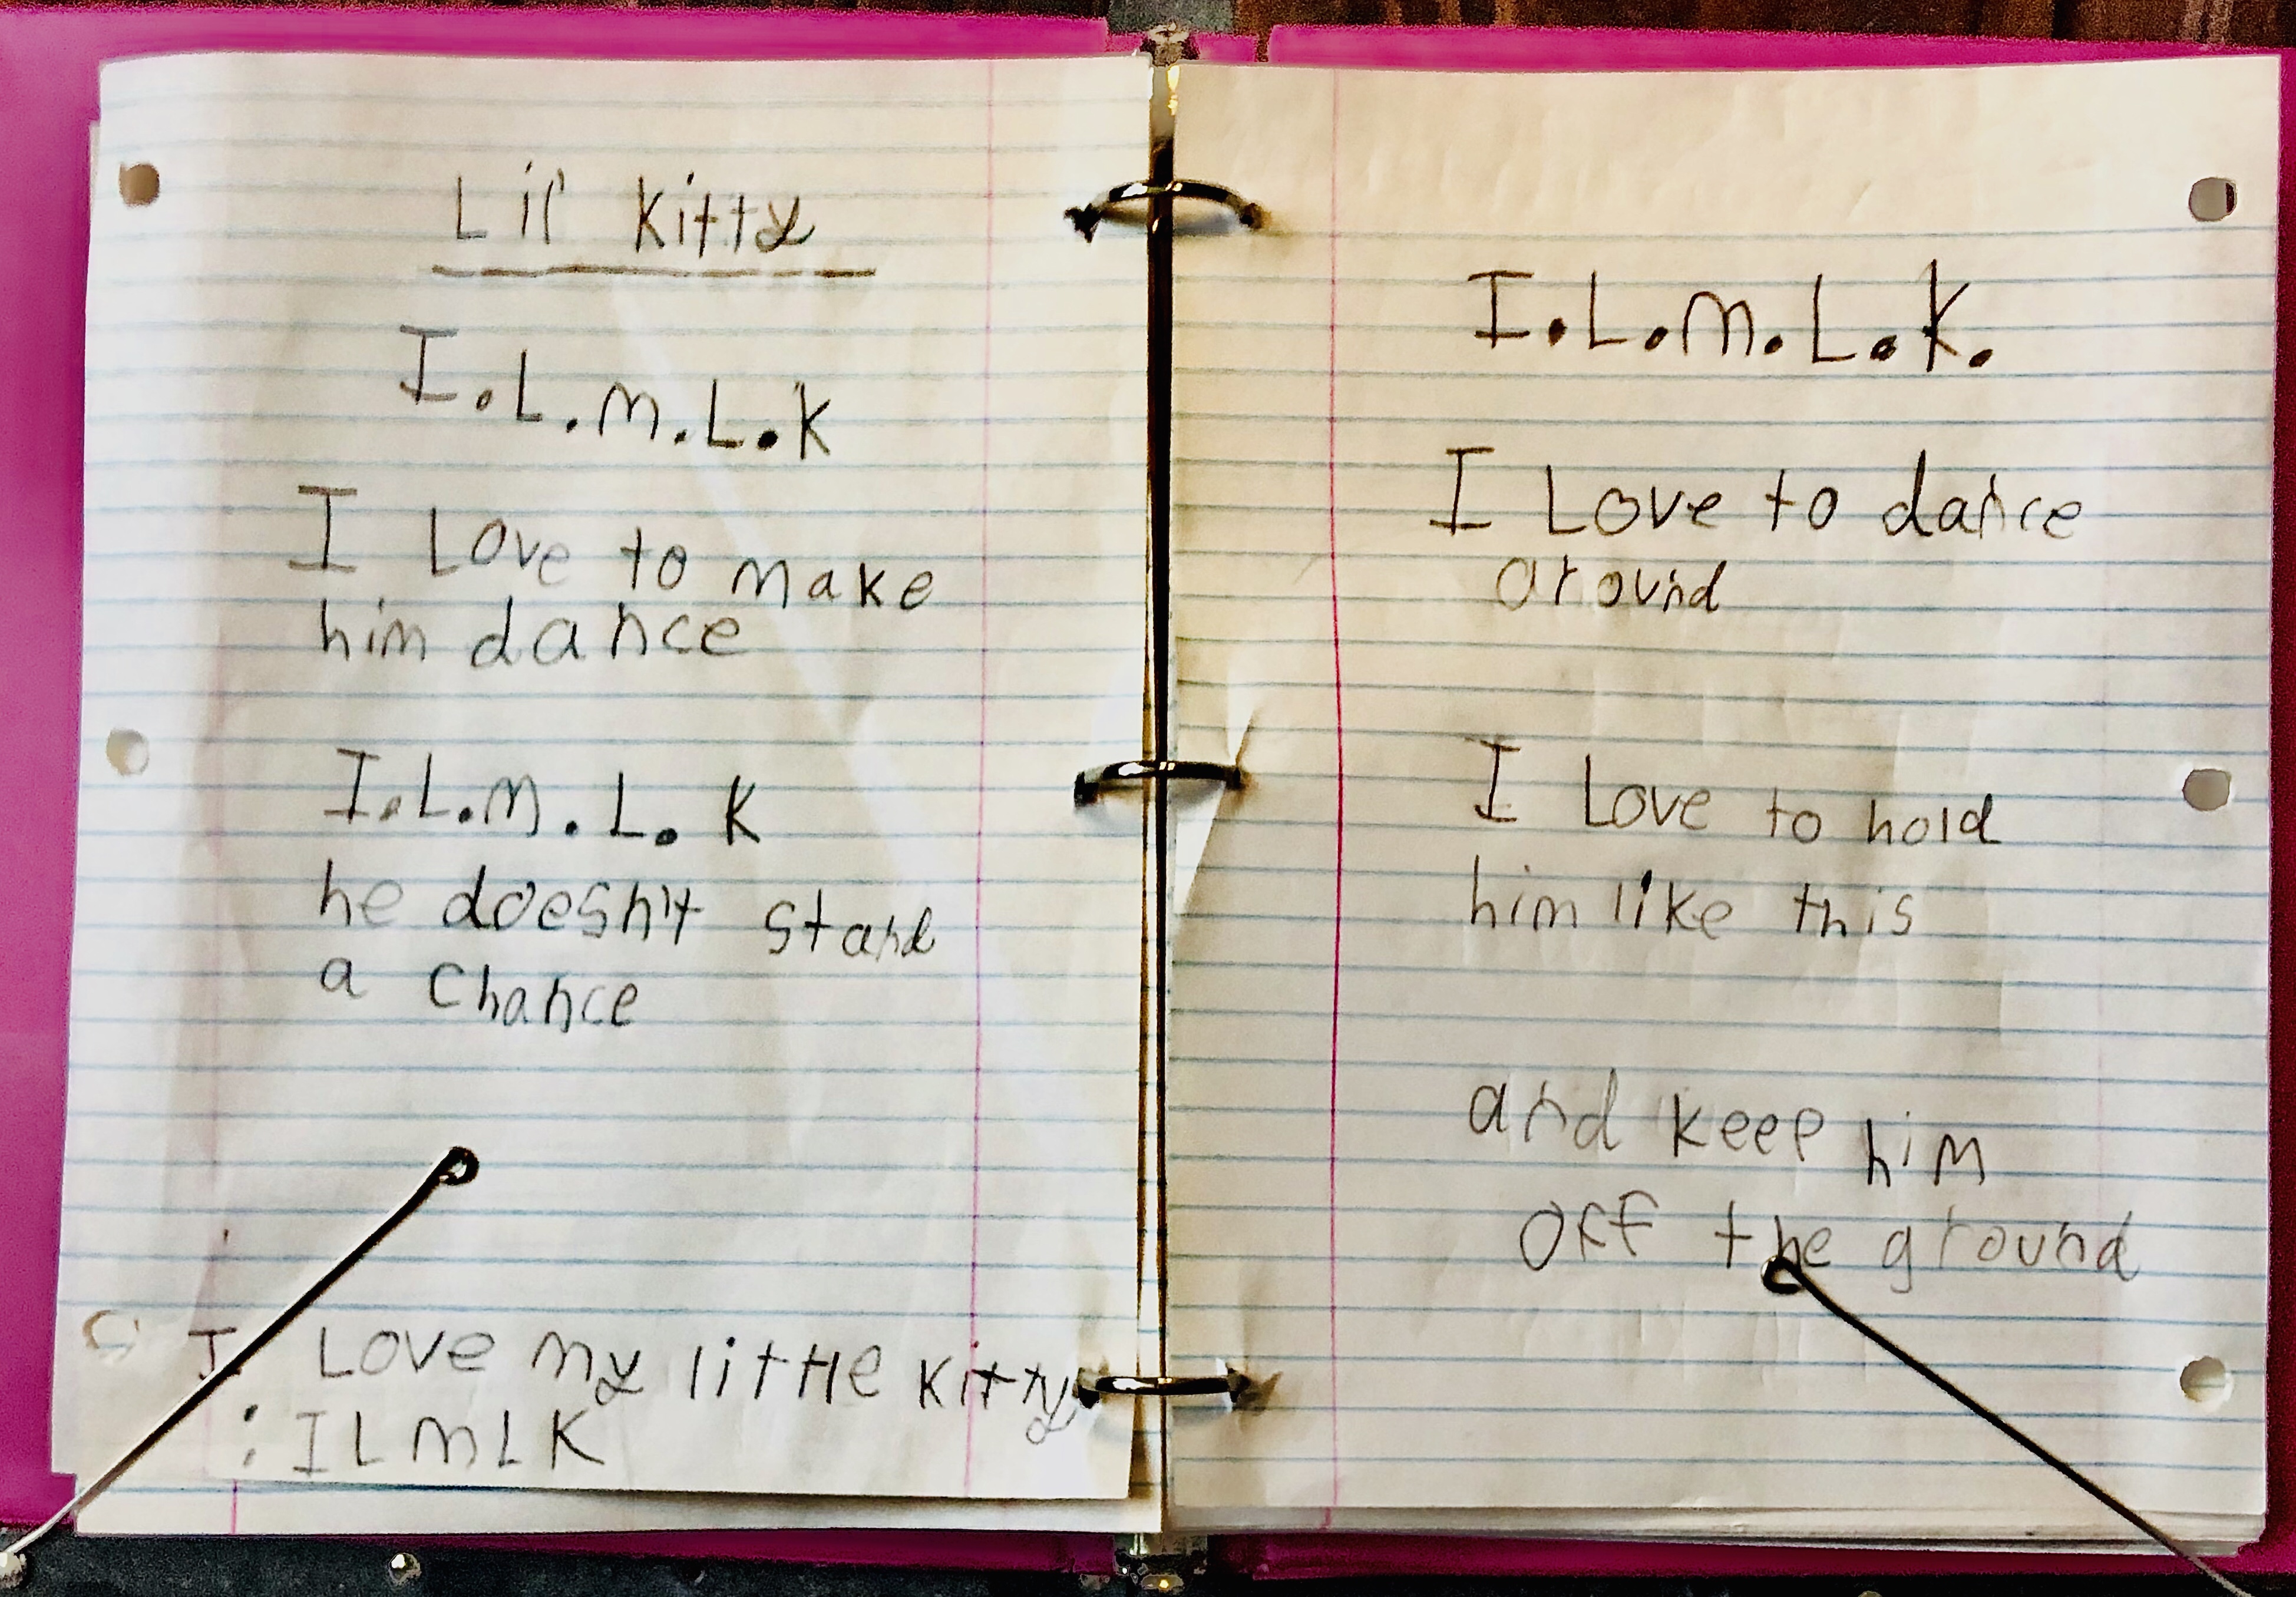 Lil' Kitty
I.L.M.L.K
I Love to make
him dance
I.L.M.L.K
he doesn't stand
a chance
I Love my little kitty
: ILMLK
I.L.M.L.K.
I Love to dance
around
I Love to hold
him like this
and keep him
off the ground